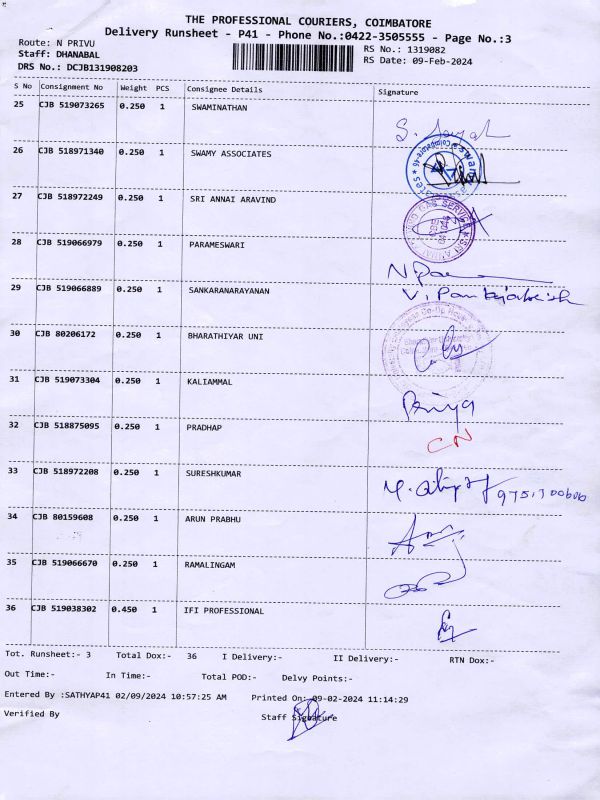 THE PROFESSIONAL COURIERS, COIMBATORE
Delivery Runsheet - P41 - Phone No.:0422-3505555 - Page No.:3
Route: N PRIVU
RS No.: 1319082
Staff: DHANABAL
RS Date: 09-Feb-2024
DRS No.: DCJB131908203
S No Consignment No Weight PCS Consignee Details Signature
25 CJB 519073265 0.250 1 SWAMINATHAN
26 CJB 518971340 0.250 1 SWAMY ASSOCIATES
27 CJB 518972249 0.250 1 SRI ANNAI ARAVIND
28 CJB 519066979 0.250 1 PARAMESWARI
29 CJB 519066889 0.250 1 SANKARANARAYANAN
30 CJB 80206172 0.250 1 BHARATHIYAR UNI
31 CJB 519073304 0.250 1 KALIAMMAL Priya
32 CJB 518875095 0.250 1 PRADHAP CN
33 CJB 518972208 0.250 1 SURESHKUMAR
34 CJB 80159608 0.250 1 ARUN PRABHU
35 CJB 519066670 0.250 1 RAMALINGAM
36 CJB 519038302 0.450 1 IFI PROFESSIONAL
Tot. Runsheet:- 3 Total Dox:- 36 I Delivery:- II Delivery:- RTN Dox:-
Out Time:- In Time:- Total POD:- Delvy Points:-
Entered By :SATHYAP41 02/09/2024 10:57:25 AM Printed On: 09-02-2024 11:14:29
Verified By Staff Signature